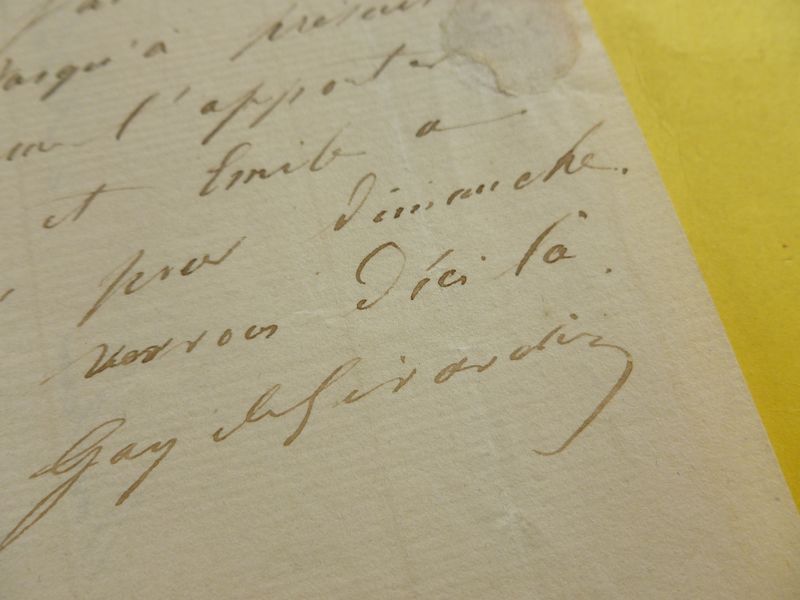 jusqu'à présent
l'apporter
et Emile a
pour dimanche.
verrons d'ici là.
Gay de Girardin